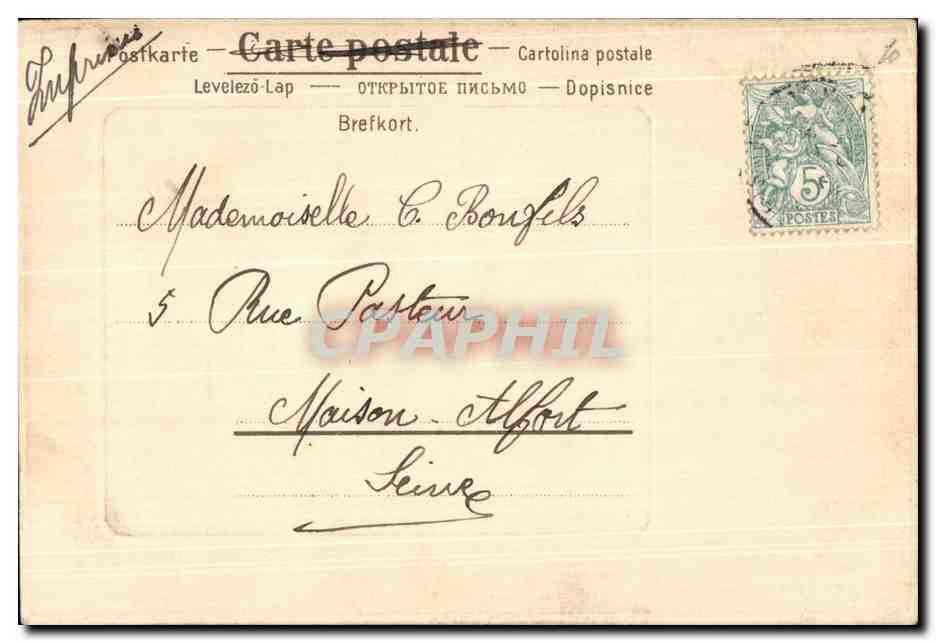 Imprimé
Postkarte — Carte postale — Cartolina postale
Levelező-Lap — ОТКРЫТОЕ ПИСЬМО — Dopisnice
Brefkort.
10
5c
POSTES
Mademoiselle C. Bonfils
5 Rue Pasteur
CPAPHIL
Maison-Alfort
Seine